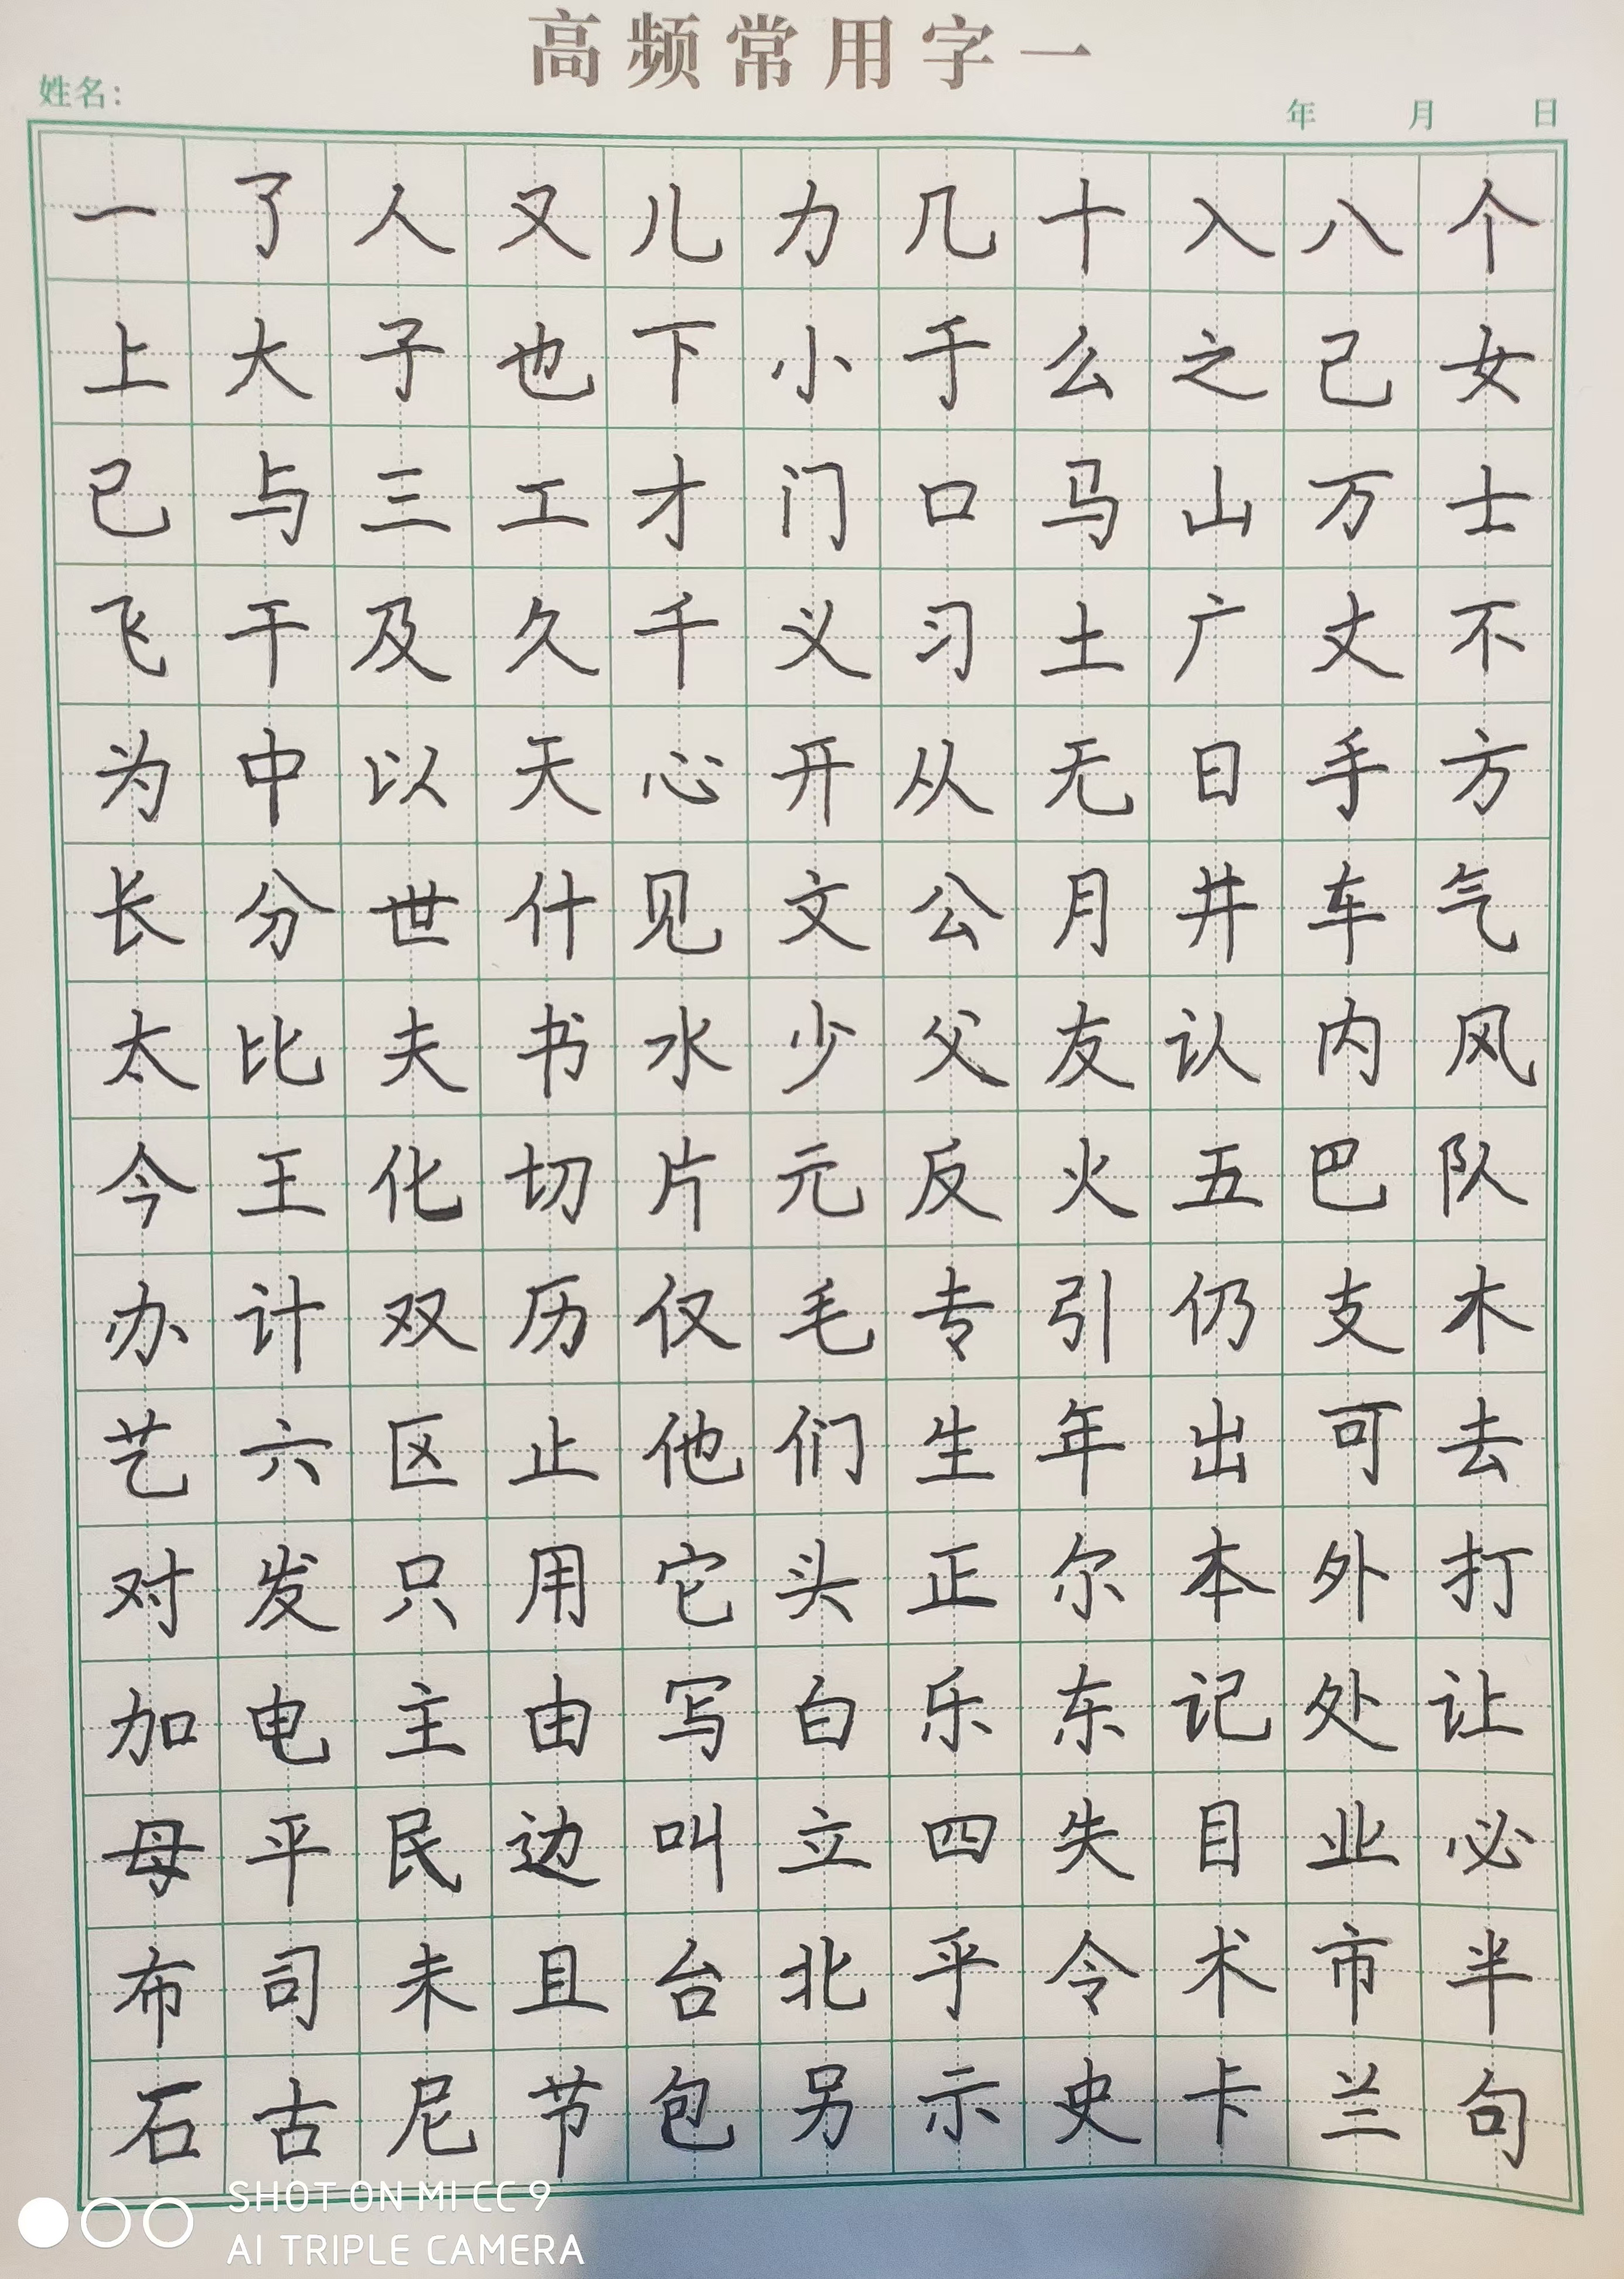 高频常用字一
姓名：
年 月 日
一了人又儿力几十入八个
上大子也下小于么之己女
已与三工才门口马山万士
飞干及久千义习土广丈不
为中以天心开从无日手方
长分世什见文公月井车气
太比夫书水少父友认内风
今王化切片元反火五巴队
办计双历仅毛专引仍支木
艺六区止他们生年出可去
对发只用它头正尔本外打
加电主由写白乐东记处让
母平民边叫立四失目业必
布司未且台北乎令术市半
石古尼节包另示史卡兰句
SHOT ON MI CC 9
AI TRIPLE CAMERA